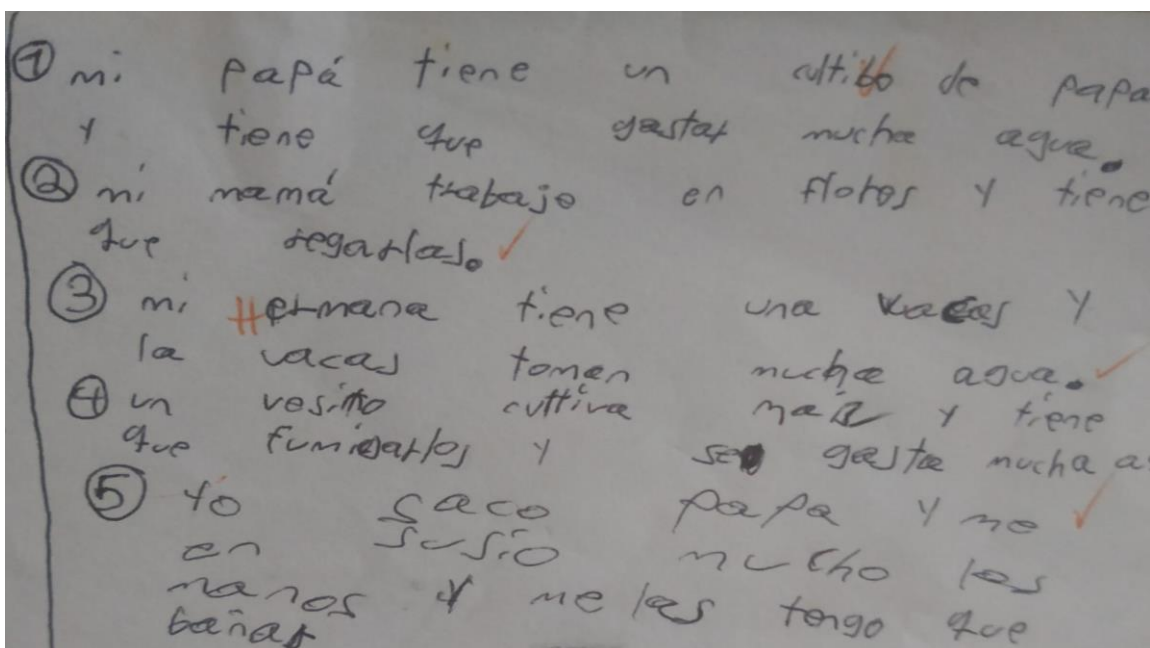 ① mi papá tiene un cultivo de papa
y tiene que gastar mucha agua.
② mi mamá trabajo en flores y tiene
que regarlas.
③ mi Hermana tiene una vacas y
la vacas tomen mucha agua.
④ un vesino cultiva maíz y tiene
que fumigarlos y se gasta mucha a
⑤ Yo saco papa y me
en susio mucho las
manos y me las tengo que
bañar